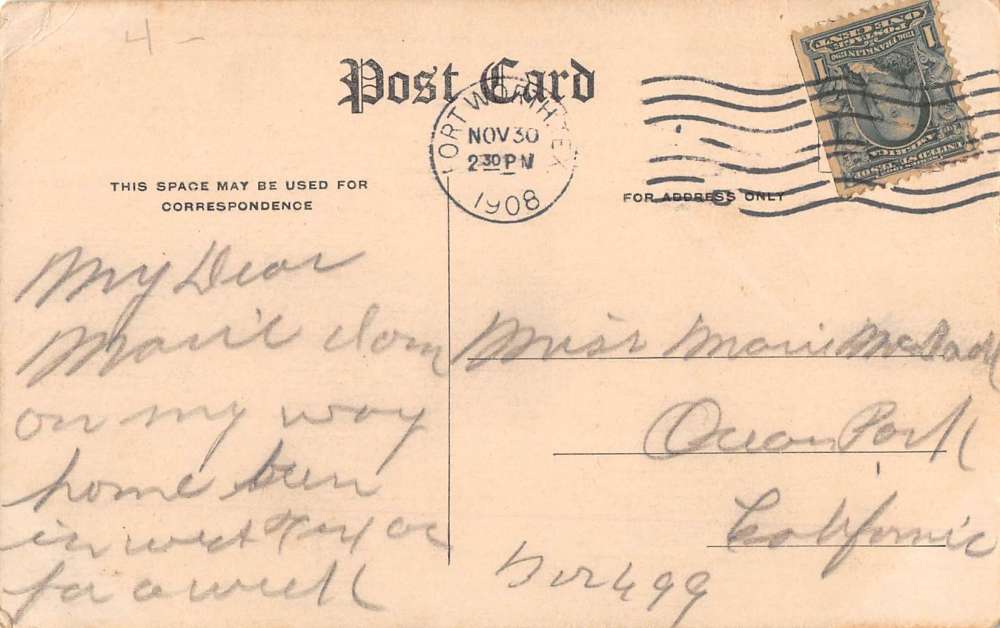 4 -
Post Card
FORT WORTH, TEX.
NOV 30
2 30 PM
1908
ONE CENT
POSTAGE
1 1
UNITED STATES OF
AMERICA
THIS SPACE MAY BE USED FOR
CORRESPONDENCE
FOR ADDRESS ONLY
My Dear
Marie
on my way
home been
in west
for a week
Miss Marie
Ocean Park
California
499